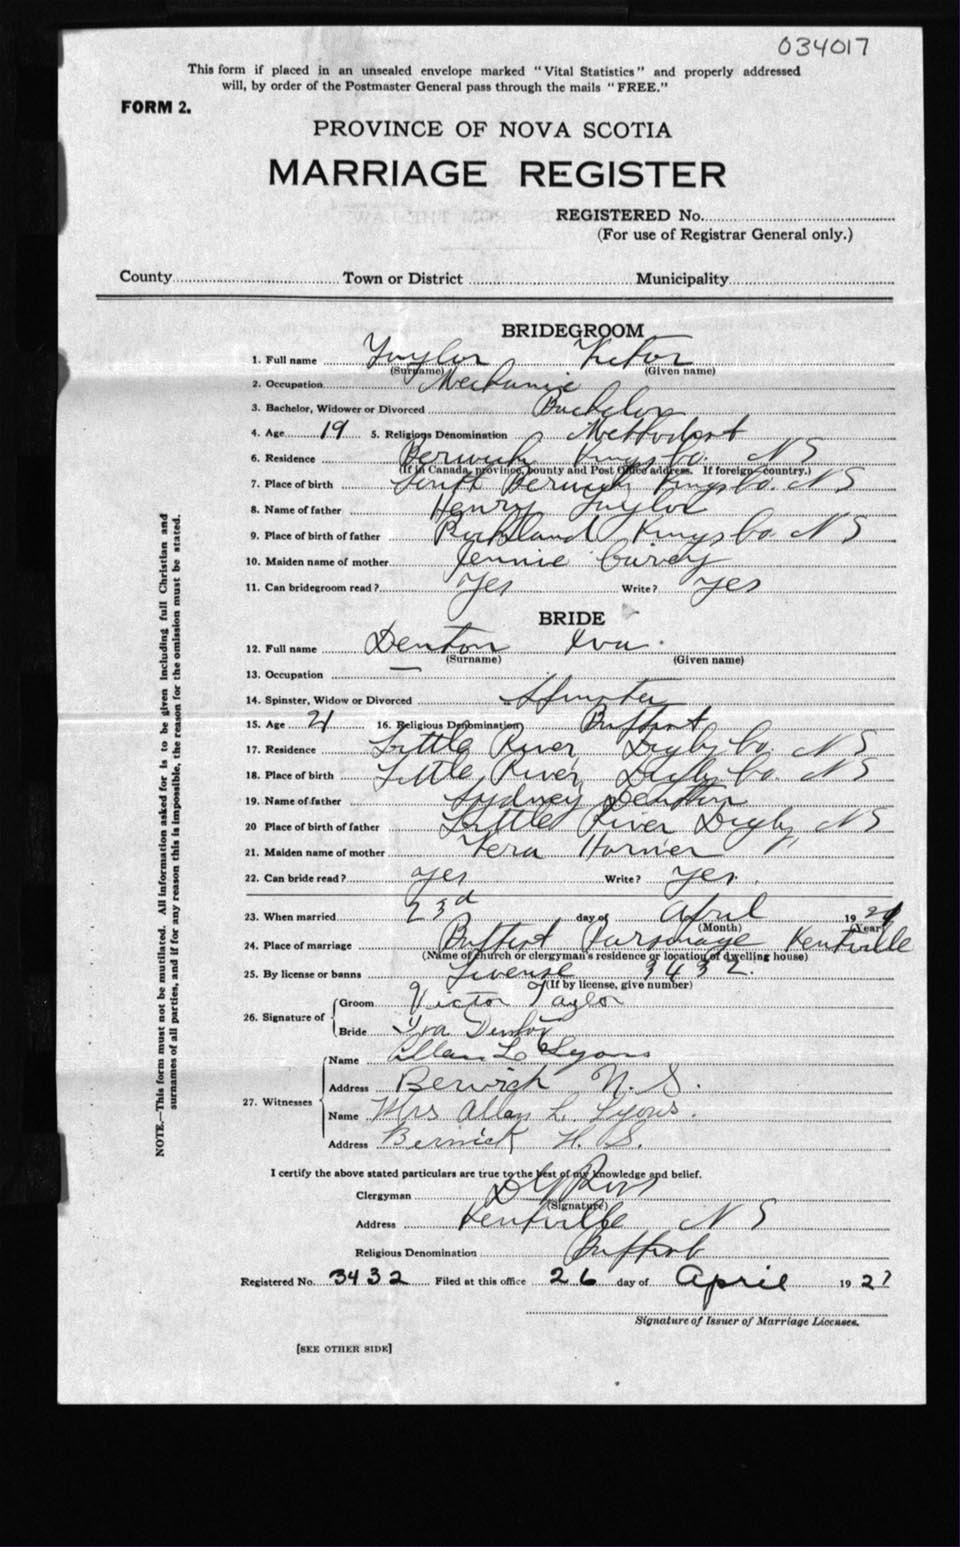 034017
This form if placed in an unsealed envelope marked "Vital Statistics" and properly addressed
will, by order of the Postmaster General pass through the mails "FREE."
FORM 2.
PROVINCE OF NOVA SCOTIA
MARRIAGE REGISTER
REGISTERED No.
(For use of Registrar General only.)
County Town or District Municipality
BRIDEGROOM
1. Full name Taylor Victor
(Surname) (Given name)
2. Occupation Mechanic
3. Bachelor, Widower or Divorced Bachelor
4. Age 19 5. Religious Denomination Methodist
6. Residence Berwick Kings Co. N S
(If in Canada, province, county and Post Office address. If foreign country.)
7. Place of birth South Berwick Kings Co. N S
8. Name of father Henry Taylor
9. Place of birth of father Kings Co. N S
10. Maiden name of mother Jennie
11. Can bridegroom read? Yes Write? Yes
BRIDE
12. Full name Denton Iva
(Surname) (Given name)
13. Occupation —
14. Spinster, Widow or Divorced Spinster
15. Age 21 16. Religious Denomination Baptist
17. Residence Little River, Digby Co. N S
18. Place of birth Little River, Digby Co. N S
19. Name of father Sydney Denton
20 Place of birth of father Little River Digby N S
21. Maiden name of mother Vera
22. Can bride read? yes Write? yes.
23. When married 23d day of April 19
(Month) (Year)
24. Place of marriage Baptist Parsonage Kentville
(Name of church or clergyman's residence or location of dwelling house)
25. By license or banns License 3432.
(If by license, give number)
26. Signature of Groom Victor Taylor
Bride Iva Denton
27. Witnesses
Name Allan L. Lyons
Address Berwick N. S.
Name Mrs Allan L. Lyons.
Address Berwick N. S.
I certify the above stated particulars are true to the best of my knowledge and belief.
Clergyman
(Signature)
Address Kentville N S
Religious Denomination Baptist
Registered No. 3432 Filed at this office 26 day of April 1927
Signature of Issuer of Marriage Licenses.
[SEE OTHER SIDE]
NOTE.—This form must not be mutilated. All information asked for is to be given including full Christian and
surnames of all parties, and if for any reason this is impossible, the reason for the omission must be stated.